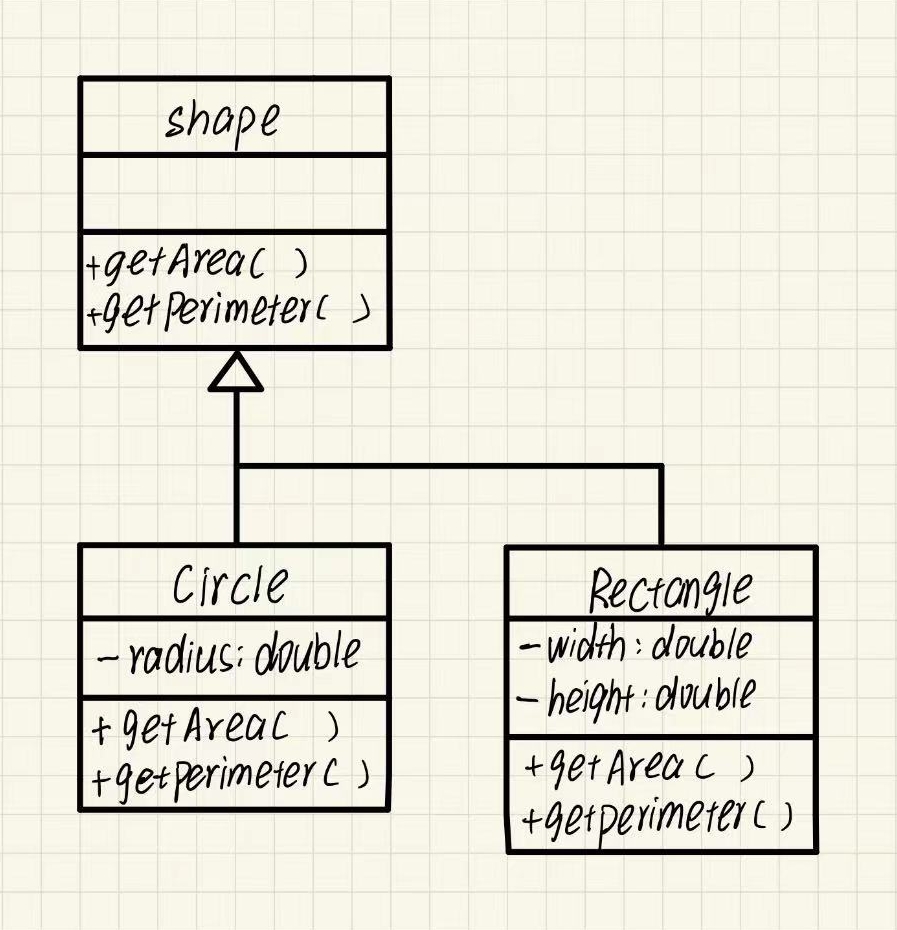 shape
+getArea( )
+getperimeter( )
Circle
- radius: double
+ getArea( )
+getperimeter( )
Rectangle
- width: double
- height: double
+getArea( )
+getperimeter( )